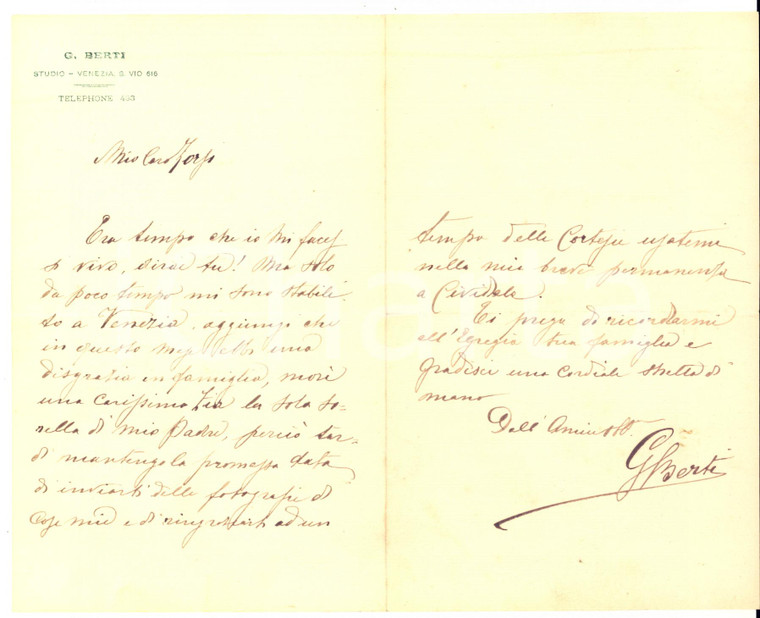 G. BERTI
STUDIO – VENEZIA, S. VIO 616
TELEPHONE 430
Mio Caro Zorzi
Era tempo che io mi facess
i vivo, dirai tu! Ma solo
da poco tempo mi sono stabili-
to a Venezia, aggiungi che
in questo mese ebbi una
disgrazia in famiglia, morì
una carissima Zia la sola so-
rella di mio Padre, perciò tar-
di mantengo la promessa data
di inviarti delle fotografie di
cose mie e di ringraziarti ad un
tempo delle Cortesie usatemi
nella mia breve permanenza
a Cividale.
Ti prego di ricordarmi
all'Egregia tua famiglia e
gradisci una cordiale stretta di
mano
Dall'
GBerti